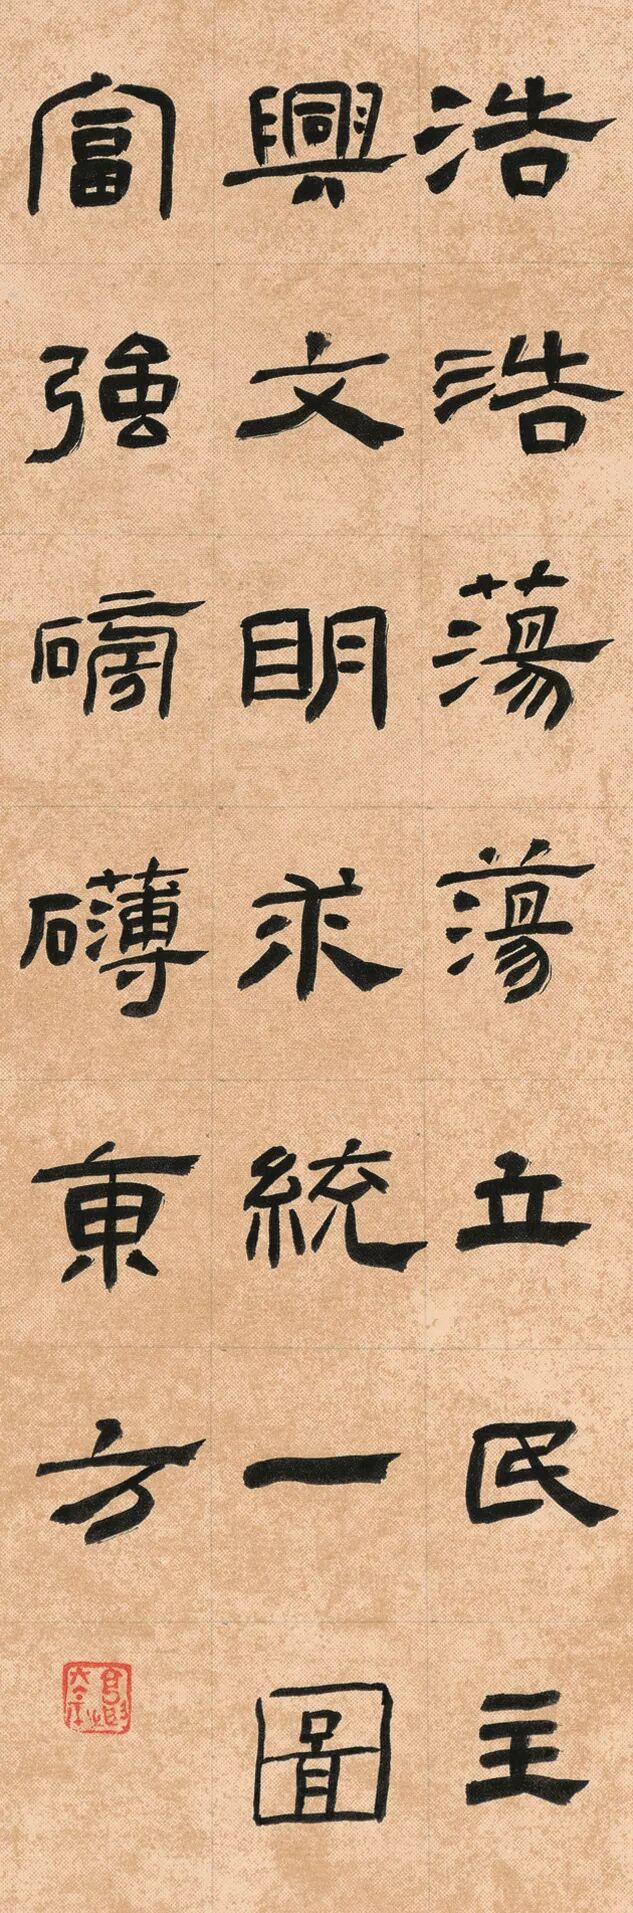 浩浩蕩蕩立民主
興文明求統一圖
富強磅礴東方